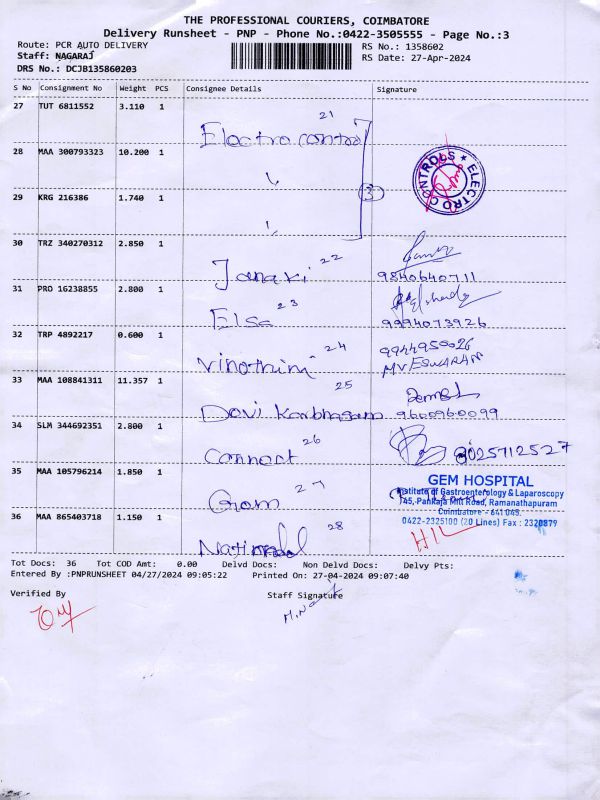 THE PROFESSIONAL COURIERS, COIMBATORE
Delivery Runsheet - PNP - Phone No.:0422-3505555 - Page No.:3
Route: PCR AUTO DELIVERY
RS No.: 1358602
Staff: NAGARAJ
RS Date: 27-Apr-2024
DRS No.: DCJB135860203
S No Consignment No Weight PCS Consignee Details Signature
27 TUT 6811552 3.110 1 Electro control 21
28 MAA 300793323 10.200 1
CONTROLS ★ ELECTRO
29 KRG 216386 1.740 1
3
30 TRZ 340270312 2.850 1 Janaki 22
9840640711
31 PRO 16238855 2.800 1 Elsa 23
9994073926
32 TRP 4892217 0.600 1 Vinothini 24
9944955026
MVESWARAN
33 MAA 108841311 11.357 1 Devi Karbhagam 25
9600960099
34 SLM 344692351 2.800 1 Connect 26
8025712527
35 MAA 105796214 1.850 1 Gram 27
GEM HOSPITAL
Institute of Gastroenterology & Laparoscopy
145, Pankaja Mill Road, Ramanathapuram
Coimbatore - 641 045.
0422-2325100 (20 Lines) Fax : 2320879
36 MAA 865403718 1.150 1 National 28
Tot Docs: 36 Tot COD Amt: 0.00 Delvd Docs: Non Delvd Docs: Delvy Pts:
Entered By :PNPRUNSHEET 04/27/2024 09:05:22 Printed On: 27-04-2024 09:07:40
Verified By Staff Signature